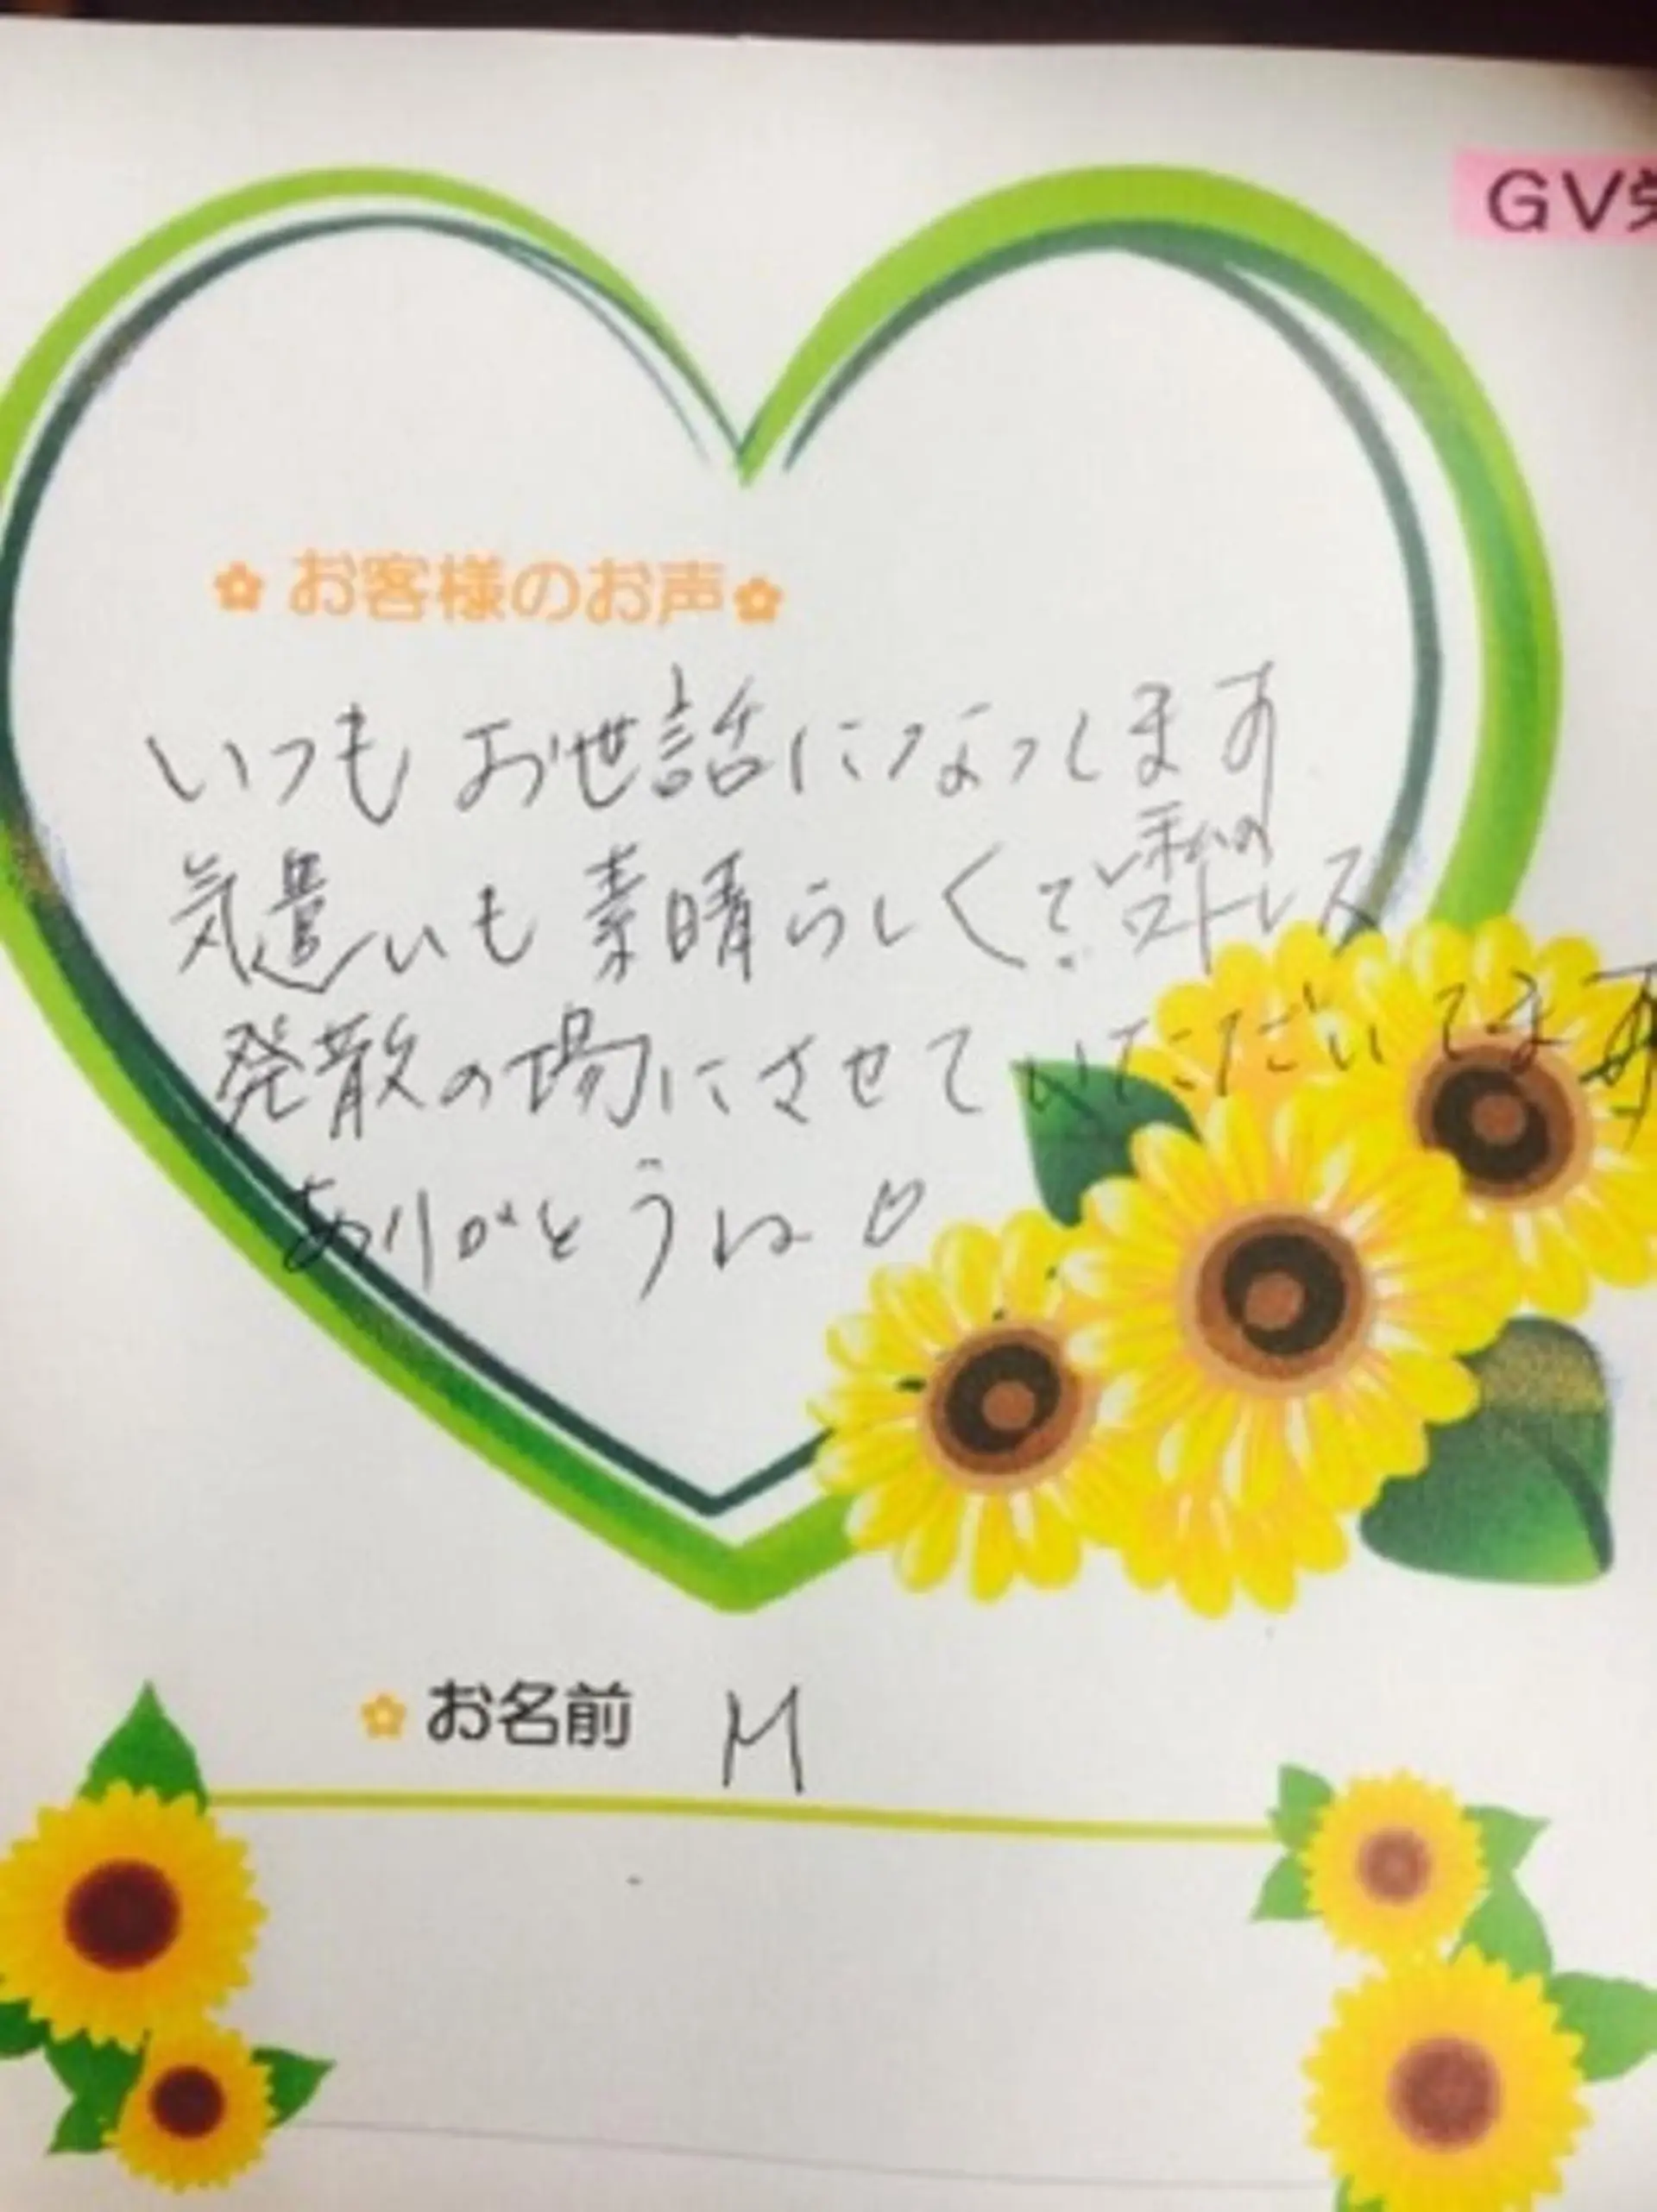 GV
お客様のお声
いつもお世話になってします
気遣いも素晴らしくて私のストレス
発散の場にさせていただいてます
ありがとうね♡
お名前 M